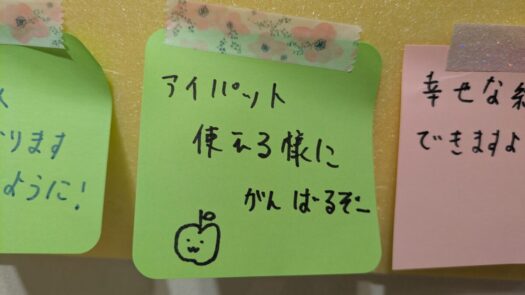 アイパット
使える様に
がんばるぞー
ります
ように!
幸せな
できますよ